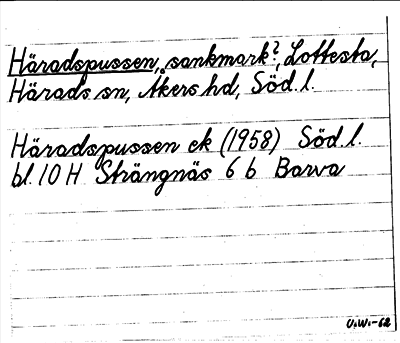 Häradspussen, sankmark?, Lottesta,
Härads sn, Åkers hd, Söd. l.
Häradspussen ek (1958) Söd. l.
bl. 10 H Strängnäs 6 b Barva
U.W.-62